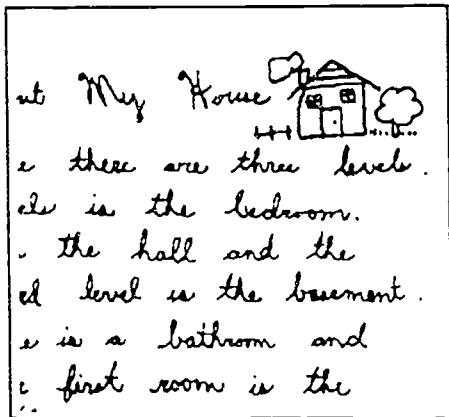 ut My House
e there are three levels.
els is the bedroom.
the hall and the
ed level is the basement.
e is a bathroom and
first room is the